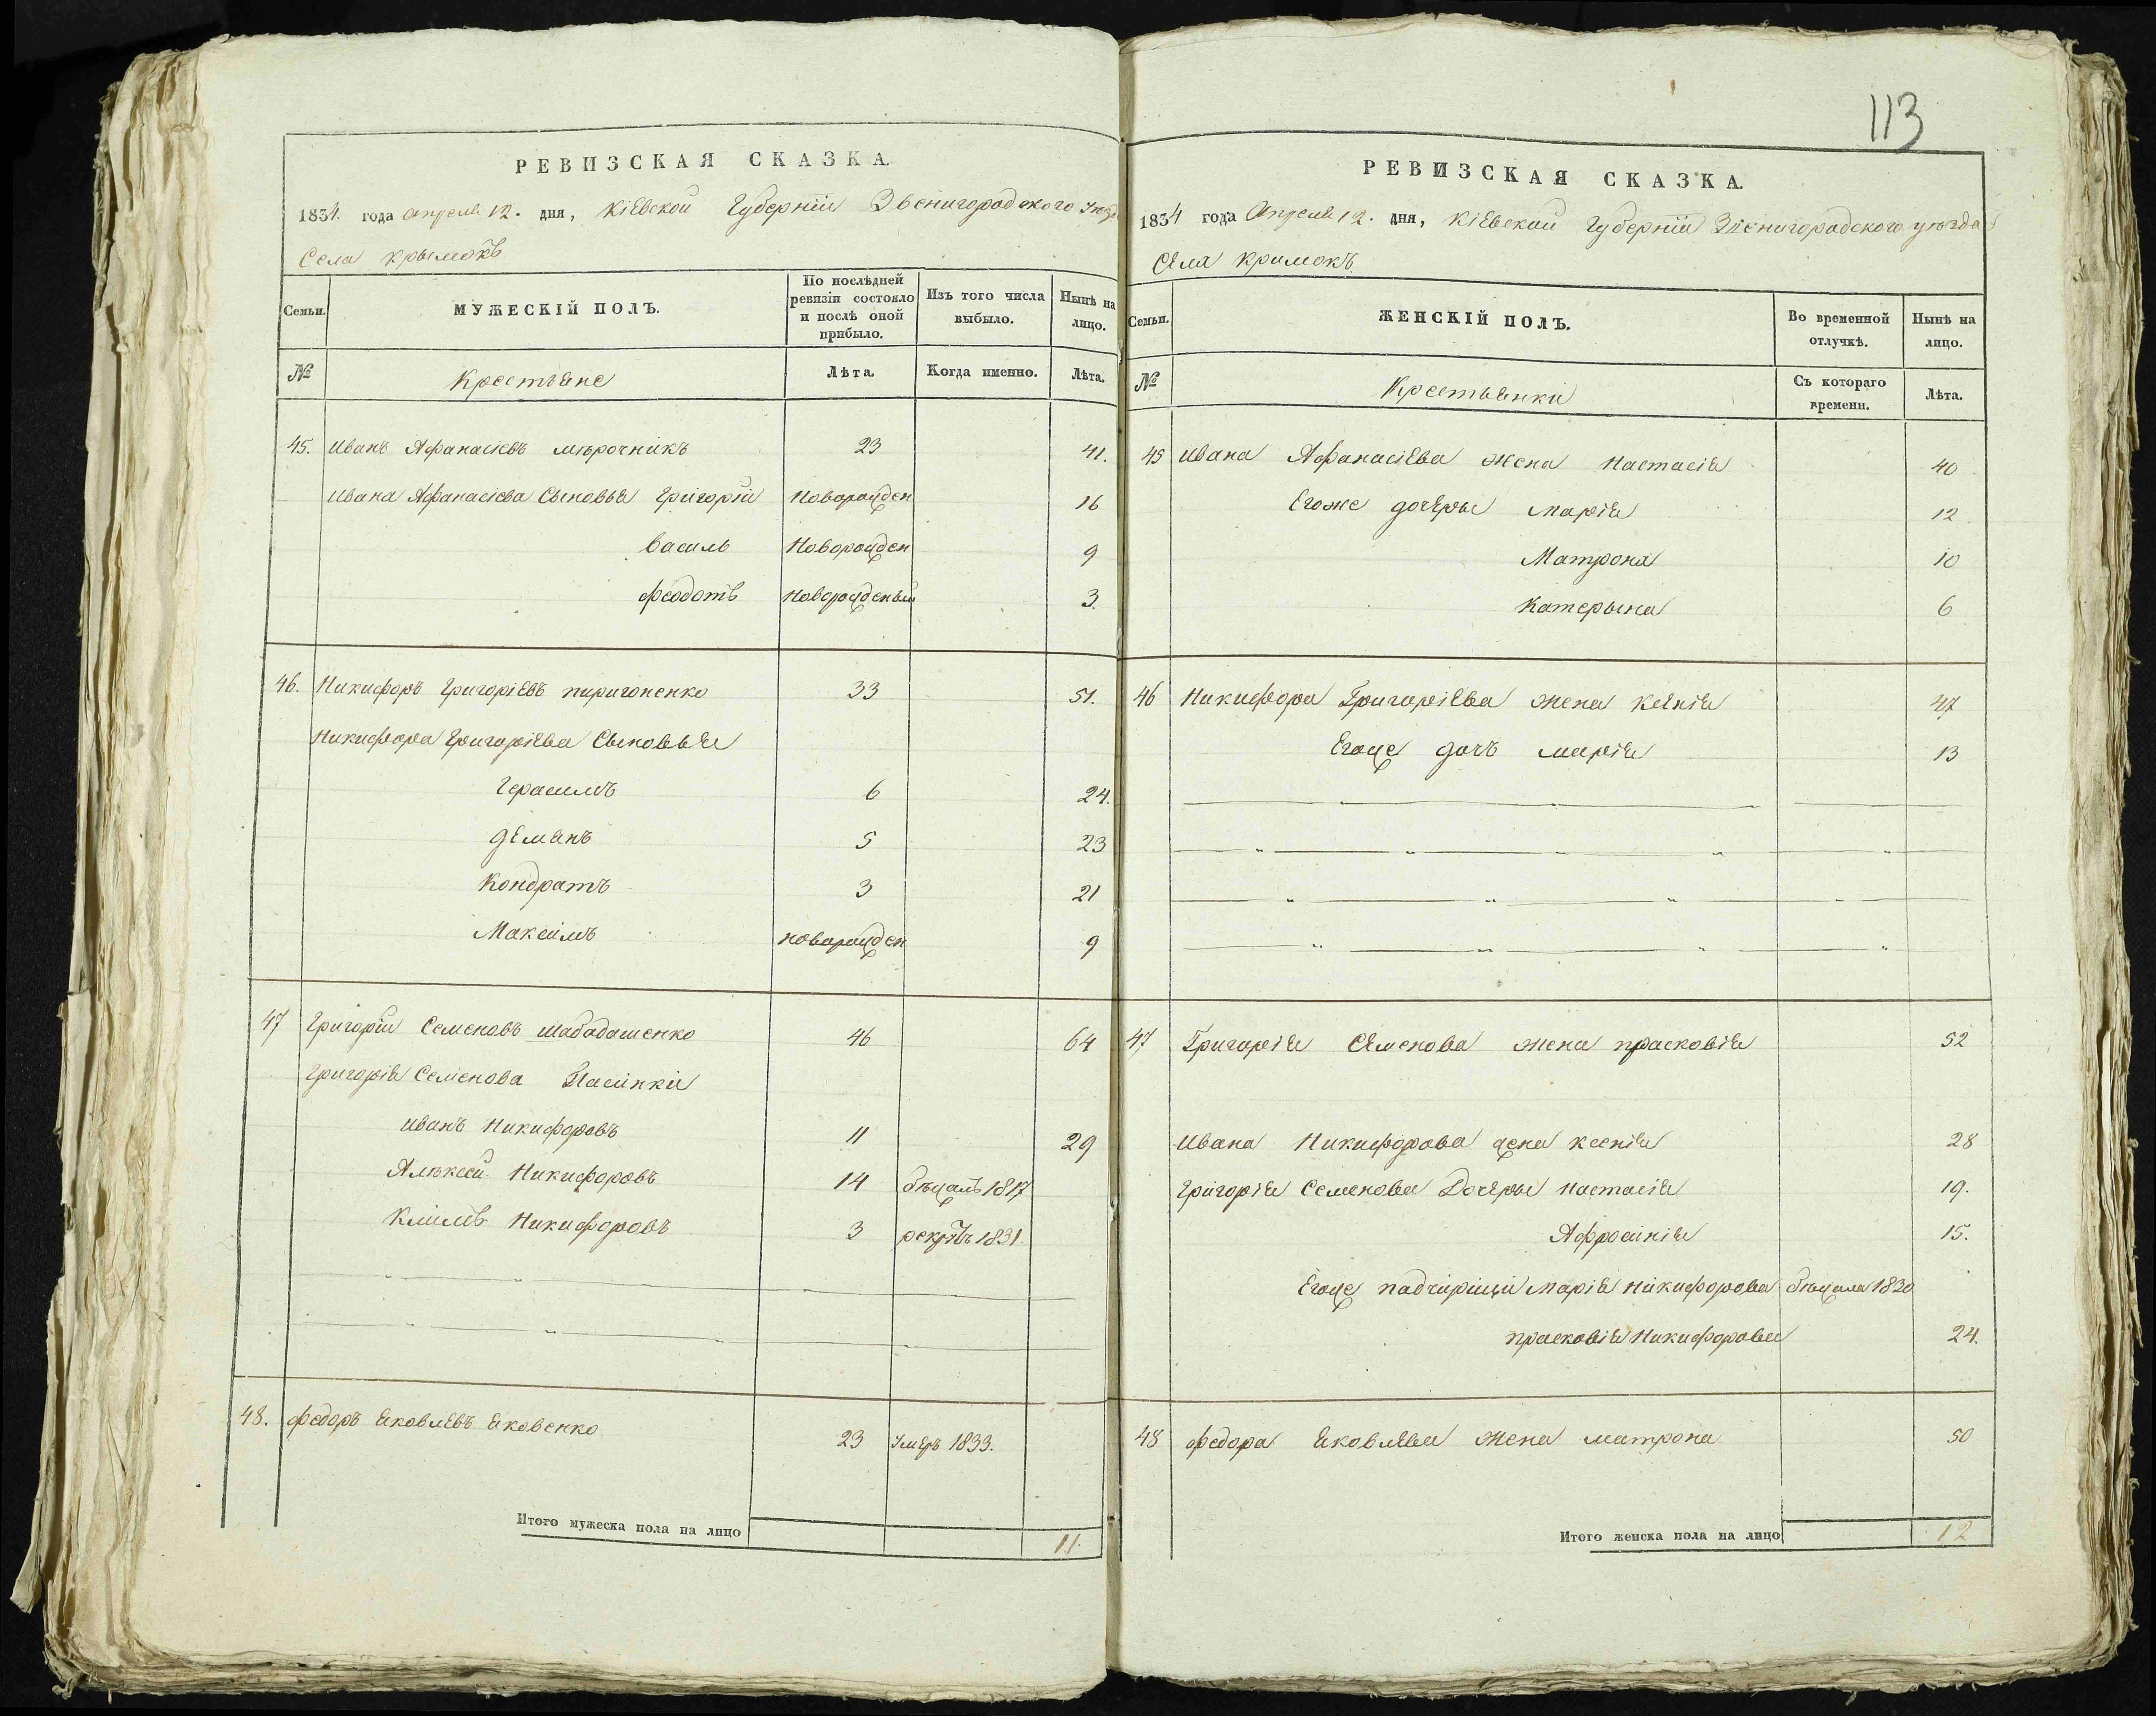 РЕВИЗСКАЯ СКАЗКА.
1834. года Апреля 12. дня, Кіевской Губерніи Звенигородского Уезд
Села Крымокъ
Семьи.
МУЖЕСКІЙ ПОЛЪ.
По послѣдней ревизіи состояло и послѣ оной прибыло.
Изъ того числа выбыло.
Нынѣ на лицо.
№
Крестьяне
Лѣта.
Когда именно.
Лѣта.
45. Иванъ Афанасіевъ мѣрочникъ 23 41.
Ивана Афанасіева Сыновья Григорій Новорожден 16
Василь Новорожден 9
Феодотъ Новорожденый 3.
46. Никифоръ Григоріевъ пиригоненко 33 51.
Никифора Григоріева Сыновья
Герасимъ 6 24.
Демянъ 5 23
Кондратъ 3 21
Максимъ новорожден 9
47 Григорій Семеновъ шабадашенко 46 64
Григорія Семенова Пасинки
Иванъ Никифоровъ 11 29
Алѣксей Никифоровъ 14 бѣжалъ 1817
Климъ Никифоровъ 3 1831.
48. Федоръ Яковлевъ Яковенко 23 Умеръ 1833.
Итого мужеска пола на лицо 11.
113
РЕВИЗСКАЯ СКАЗКА.
1834 года Апреля 12. дня, Кіевской Губерніи Звенигородского уѣзда
Села Кримокъ
Семьи.
ЖЕНСКІЙ ПОЛЪ.
Во временной отлучкѣ.
Нынѣ на лицо.
№
Крестьянки
Съ котораго времени.
Лѣта.
45 Ивана Афанасіева жена Настасія 40
Егоже дочеры Марія 12
Матрона 10
Катерына 6
46 Никифора Григоріева жена Ксенія 47
Егоже дочъ Марія 13
47 Григорія Семенова жена прасковія 52
Ивана Никифорова жена ксенія 28
Григорія Семенова Дочеры Настасія 19.
Афросинія 15.
Егоже падчирицы Марія Никифорова бѣжала 1830
прасковія Никифорова 24.
48 Федора Яковлева жена матрона 50
Итого женска пола на лицо 12